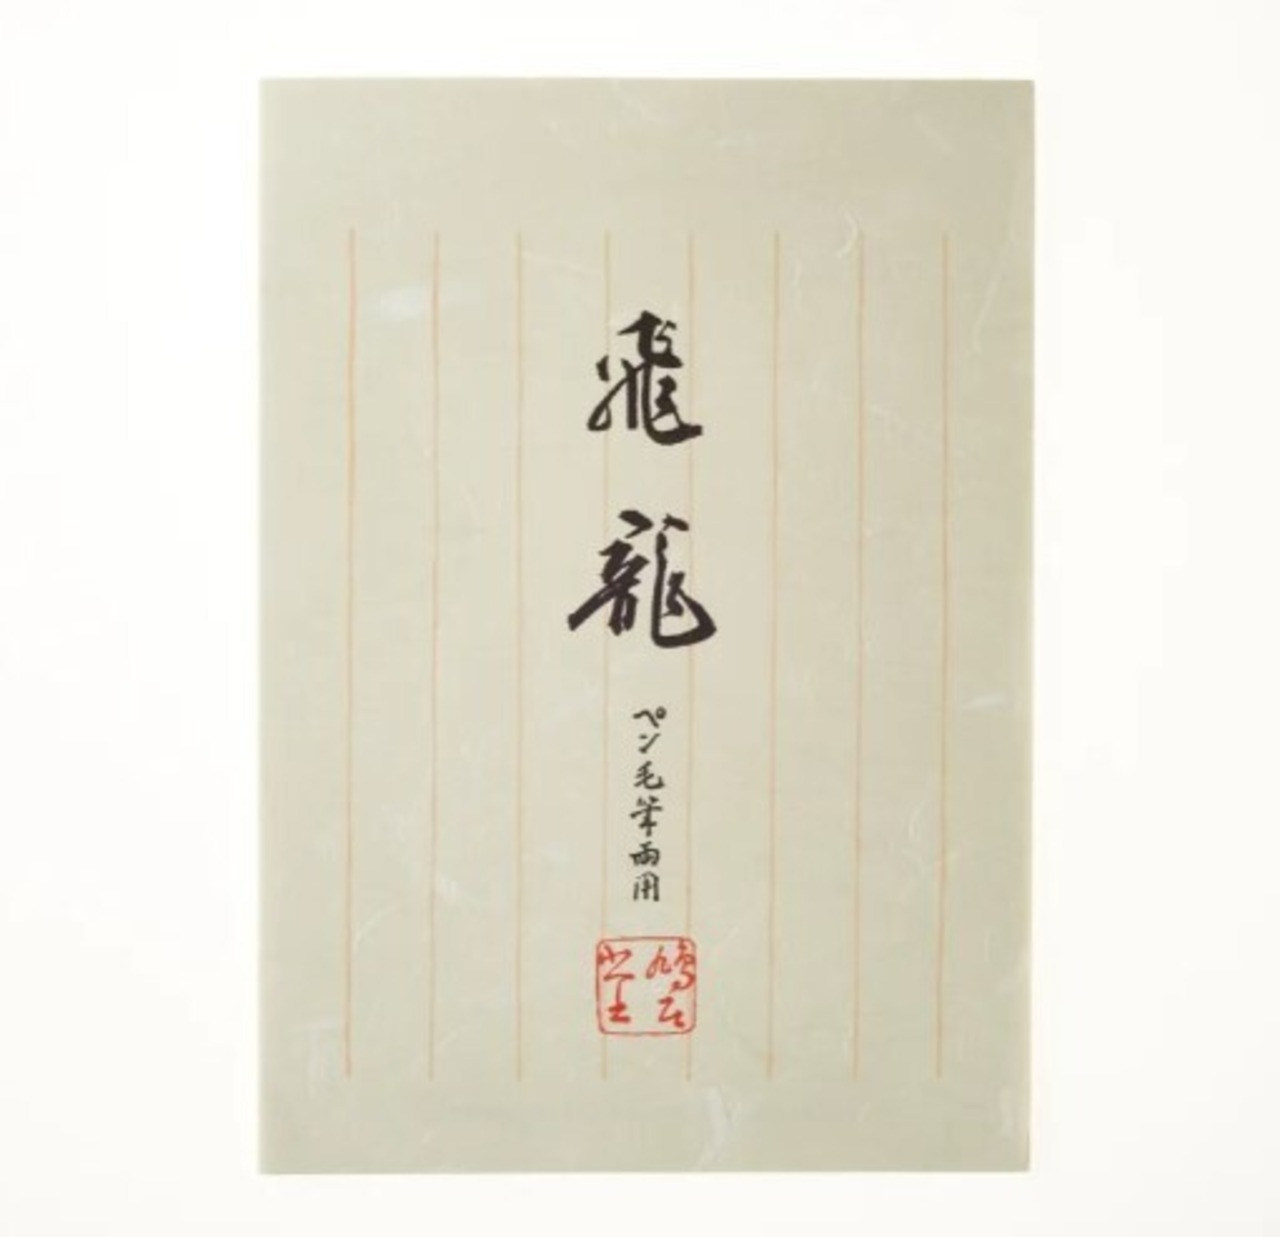 飛龍
ペン毛筆両用
鳩居堂